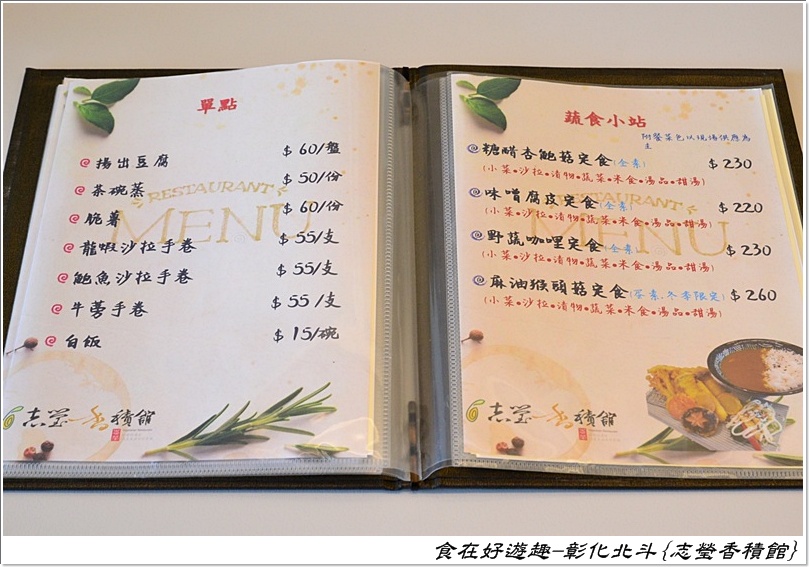 單點
揚出豆腐 $60/盤
茶碗蒸 $50/份
脆薯 $60/份
龍蝦沙拉手卷 $55/支
鮑魚沙拉手卷 $55/支
牛蒡手卷 $55/支
白飯 $15/碗
RESTAURANT
MENU
志瑩香積館
蔬食小站
附餐菜色以現場供應為主
糖醋杏鮑菇定食(全素) $230
(小菜•沙拉•漬物•蔬菜•米食•湯品•甜湯)
味噌腐皮定食(全素) $220
(小菜•沙拉•漬物•蔬菜•米食•湯品•甜湯)
野蔬咖哩定食(全素) $230
(小菜•沙拉•漬物•蔬菜•米食•湯品•甜湯)
麻油猴頭菇定食(蛋素.冬季限定) $260
(小菜•沙拉•漬物•蔬菜•米食•湯品•甜湯)
MENU
志瑩香積館
食在好遊趣-彰化北斗{志瑩香積館}